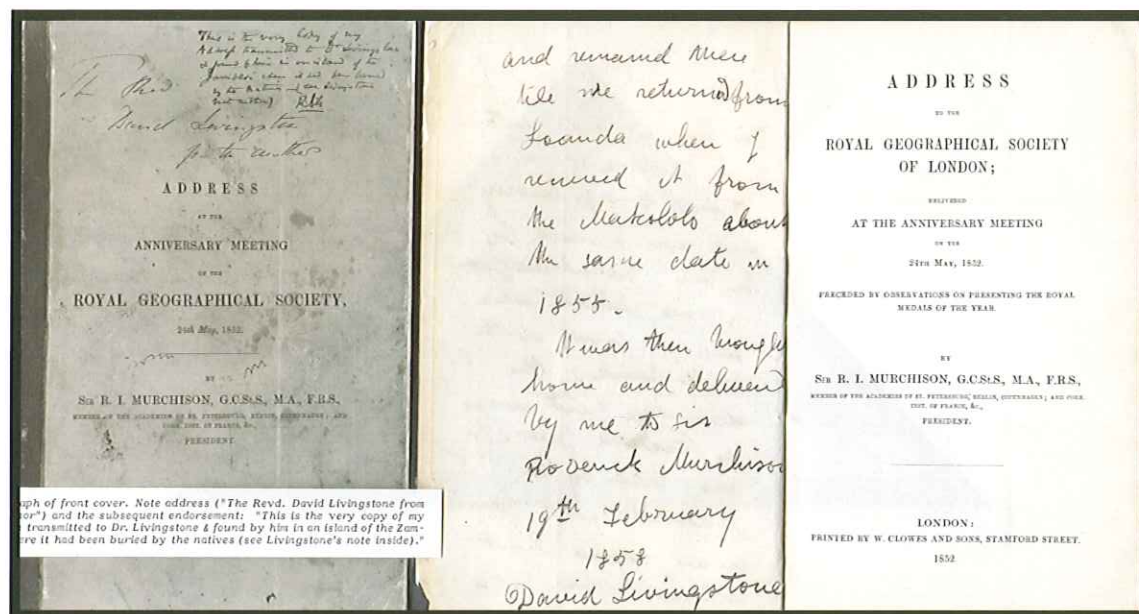 This is the very Copy of my
Address transmitted to Dr Livingstone
& found by him in an island of the
Zambesi where it had been buried
by the Natives (see Livingstone's
note inside)
The Revd
David Livingstone
from the author
ADDRESS
AT THE
ANNIVERSARY MEETING
OF THE
ROYAL GEOGRAPHICAL SOCIETY,
24th May, 1852.
BY
SIR R. I. MURCHISON, G.C.ST.S., M.A., F.R.S.,
MEMBER OF THE ACADEMIES OF ST. PETERSBURG, BERLIN, COPENHAGEN; AND
CORR. INST. OF FRANCE, &c.,
PRESIDENT.
aph of front cover. Note address ("The Revd. David Livingstone from
or") and the subsequent endorsement: "This is the very copy of my
transmitted to Dr. Livingstone & found by him in an island of the Zam-
re it had been buried by the natives (see Livingstone's note inside)."
and remained there
till we returned from
Loanda when I
received it from
the Makololo about
the same date in
1855.
It was then brough
home and delivered
by me to Sir
Roderick Murchison
19th February
1858
David Livingstone
ADDRESS
TO THE
ROYAL GEOGRAPHICAL SOCIETY
OF LONDON;
DELIVERED
AT THE ANNIVERSARY MEETING
ON THE
24TH MAY, 1852.
PRECEDED BY OBSERVATIONS ON PRESENTING THE ROYAL
MEDALS OF THE YEAR.
BY
SIR R. I. MURCHISON, G.C.ST.S., M.A., F.R.S.,
MEMBER OF THE ACADEMIES OF ST. PETERSBURG, BERLIN, COPENHAGEN; AND CORR.
INST. OF FRANCE, &c.,
PRESIDENT.
LONDON:
PRINTED BY W. CLOWES AND SONS, STAMFORD STREET.
1852.